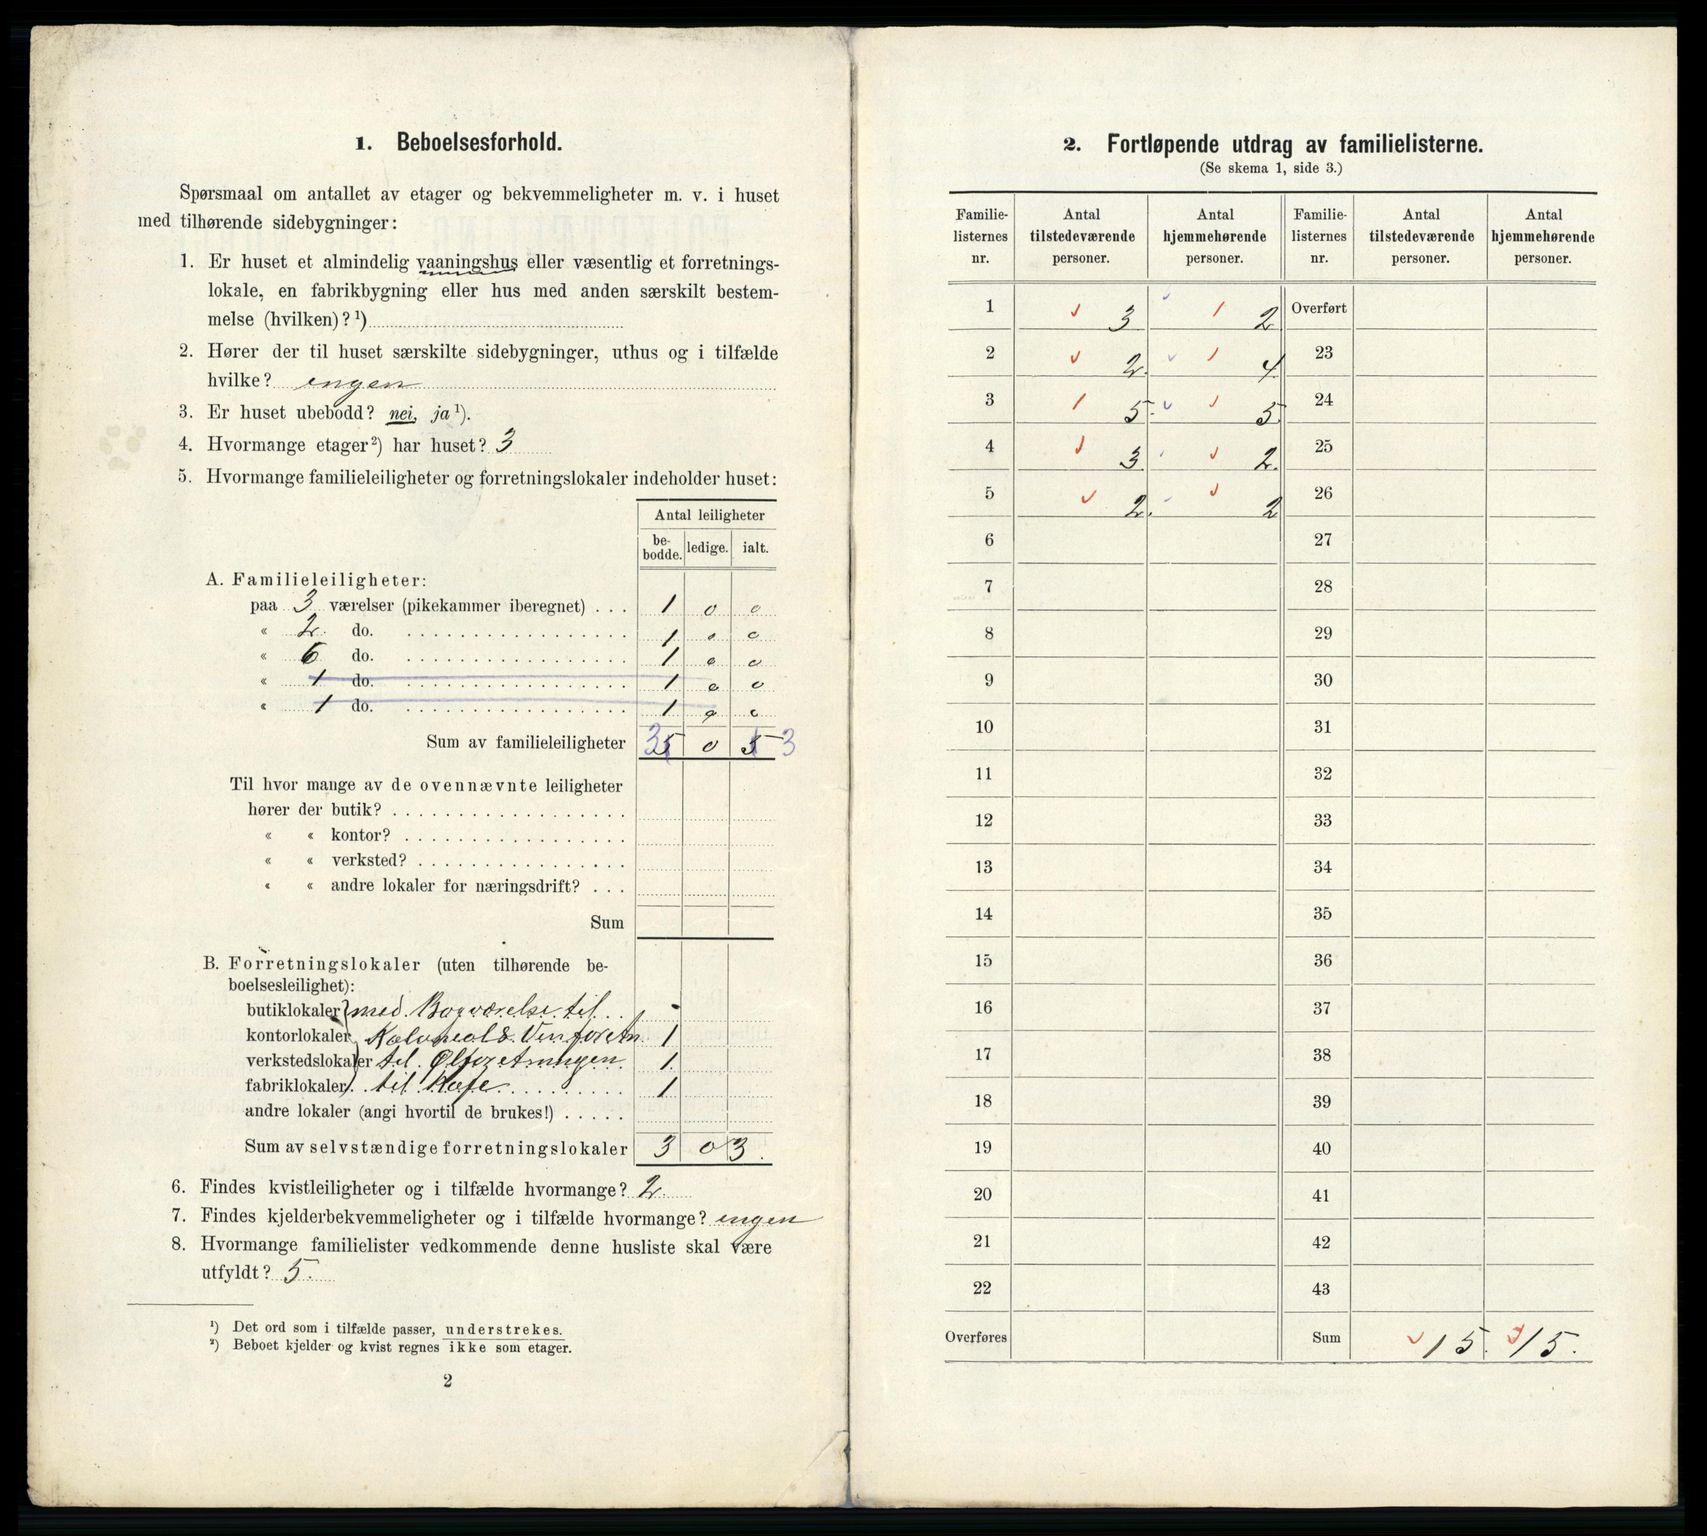 1. Beboelsesforhold.
Spørsmaal om antallet av etager og bekvemmeligheter m. v. i huset
med tilhørende sidebygninger:
1. Er huset et almindelig vaaningshus eller væsentlig et forretnings-
lokale, en fabrikbygning eller hus med anden særskilt bestem-
melse (hvilken)? ¹)
2. Hører der til huset særskilte sidebygninger, uthus og i tilfælde
hvilke? ingen
3. Er huset ubebodd? nei, ja ¹).
4. Hvormange etager ²) har huset? 3
5. Hvormange familieleiligheter og forretningslokaler indeholder huset:
Antal leiligheter
be-bodde. ledige. ialt.
A. Familieleiligheter:
paa 3 værelser (pikekammer iberegnet) . . . 1 0 0
« 2 do. 1 0 0
« 6 do. 1 0 0
« 1 do. 1 0 0
« 1 do. 1 0 0
Sum av familieleiligheter 3 5 0 5 3
Til hvor mange av de ovennævnte leiligheter
hører der butik?
« « kontor?
« « verksted?
« « andre lokaler for næringsdrift? . . .
Sum
B. Forretningslokaler (uten tilhørende be-
boelsesleilighet):
butiklokaler med Bagværelse til -
kontorlokaler Kolonial & Vinforetn 1
verkstedslokaler til Ølforetningen 1
fabriklokaler til Kafe 1
andre lokaler (angi hvortil de brukes!)
Sum av selvstændige forretningslokaler 3 0 3.
6. Findes kvistleiligheter og i tilfælde hvormange? 2
7. Findes kjelderbekvemmeligheter og i tilfælde hvormange? ingen
8. Hvormange familielister vedkommende denne husliste skal være
utfyldt? 5.
¹) Det ord som i tilfælde passer, understrekes.
²) Beboet kjelder og kvist regnes ikke som etager.
2
2. Fortløpende utdrag av familielisterne.
(Se skema 1, side 3.)
Familie-listernes nr. Antal tilstedeværende personer. Antal hjemmehørende personer. Familie-listernes nr. Antal tilstedeværende personer. Antal hjemmehørende personer.
1 3 2 Overført
2 2 4 23
3 5 5 24
4 3 2 25
5 2 2 26
6 27
7 28
8 29
9 30
10 31
11 32
12 33
13 34
14 35
15 36
16 37
17 38
18 39
19 40
20 41
21 42
22 43
Overføres Sum 15. 15.